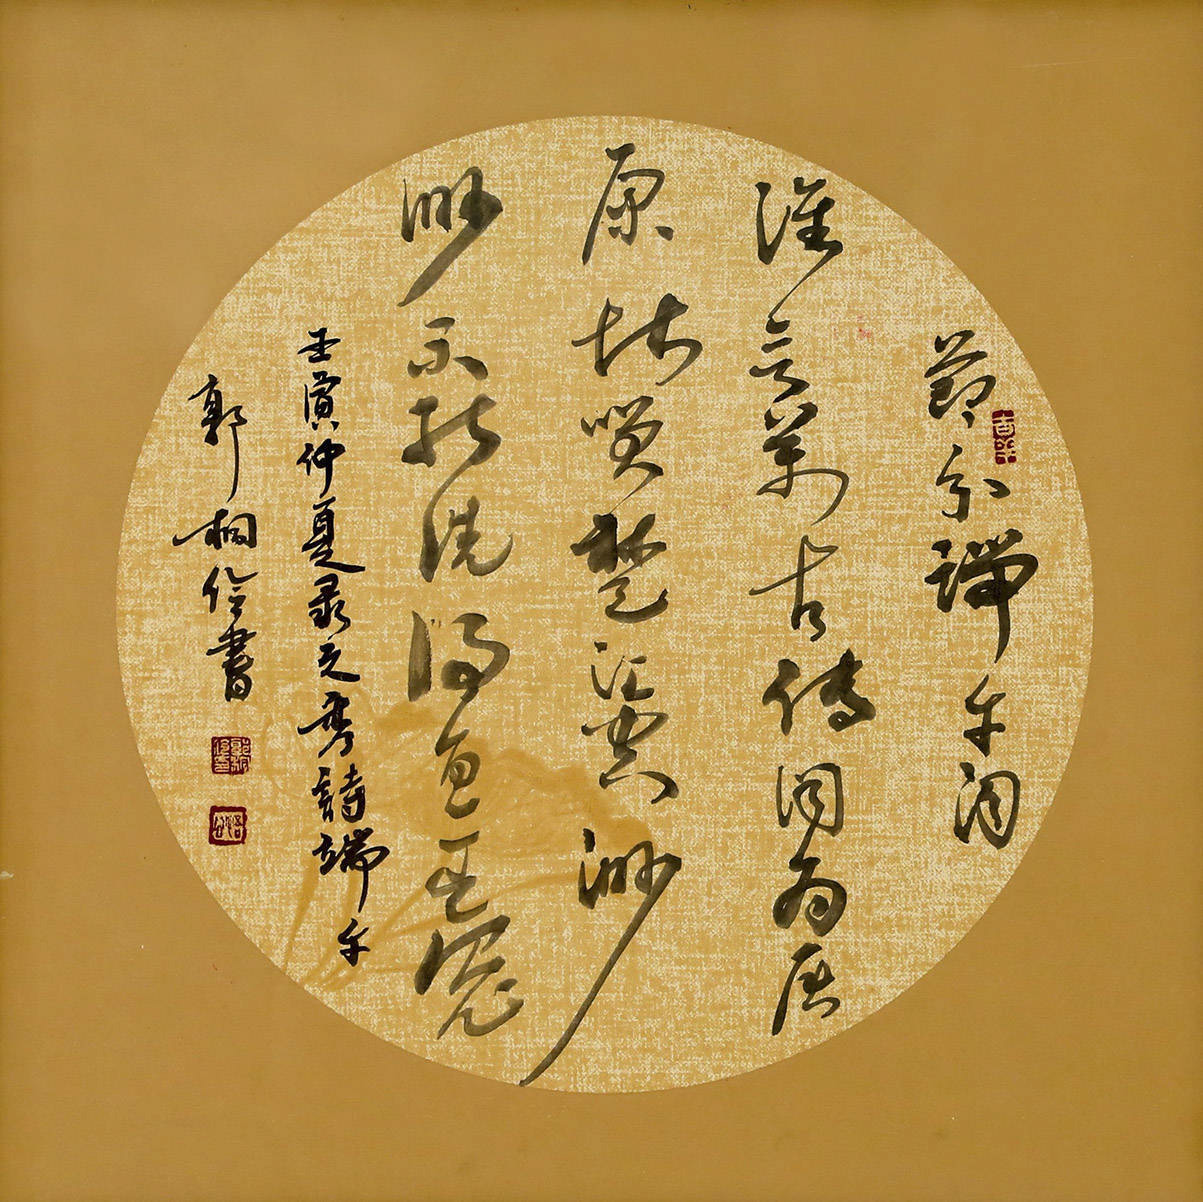 節分端午自
誰言萬古傳聞为屈
原堪笑楚江空渺
渺不能洗得直臣冤
壬寅仲夏录文秀詩端午
郭桐伶書